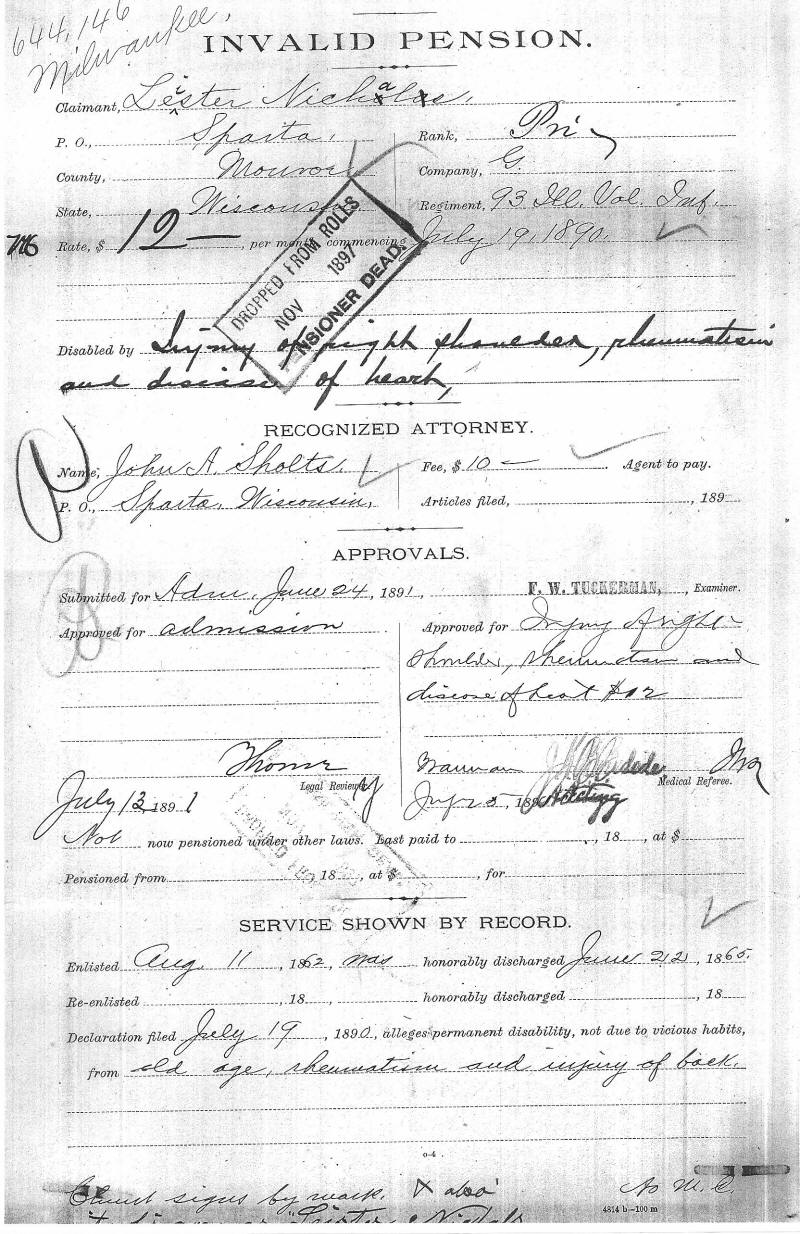 644,146
Milwaukee,
INVALID PENSION.
Claimant, Leister Nichals,
P. O., Sparta,
Rank, Pri
County, Monroe
Company, G.
State, Wisconsin
Regiment, 93 Ill. Vol. Inf.
Rate, $ 12 —, per month commencing July 19, 1890.
DROPPED FROM ROLLS
NOV 1897
PENSIONER DEAD.
Disabled by Injury of right shoulder, rheumatism
and disease of heart,
RECOGNIZED ATTORNEY.
Name, John A. Sholts.
Fee, $ 10 — Agent to pay.
P. O., Sparta, Wisconsin,
Articles filed, , 189
APPROVALS.
Submitted for Adm, June 24, 1891,
F. W. TUCKERMAN, , Examiner.
Approved for admission
Approved for Injury of right
shoulder, rheumatism and
disease of heart $12
Legal Reviewer
Medical Referee.
July 13 1891
Acting
Not now pensioned under other laws. Last paid to , 18 , at $
Pensioned from , 18 , at $ , for
SERVICE SHOWN BY RECORD.
Enlisted Aug. 11, 1862, was honorably discharged June 22, 1865.
Re-enlisted , 18 , honorably discharged , 18
Declaration filed July 19, 1890, alleges permanent disability, not due to vicious habits,
from old age, rheumatism and injury of back.
o-4
Claimt signs by mark. X also
No M. C.
4814 b—100 m